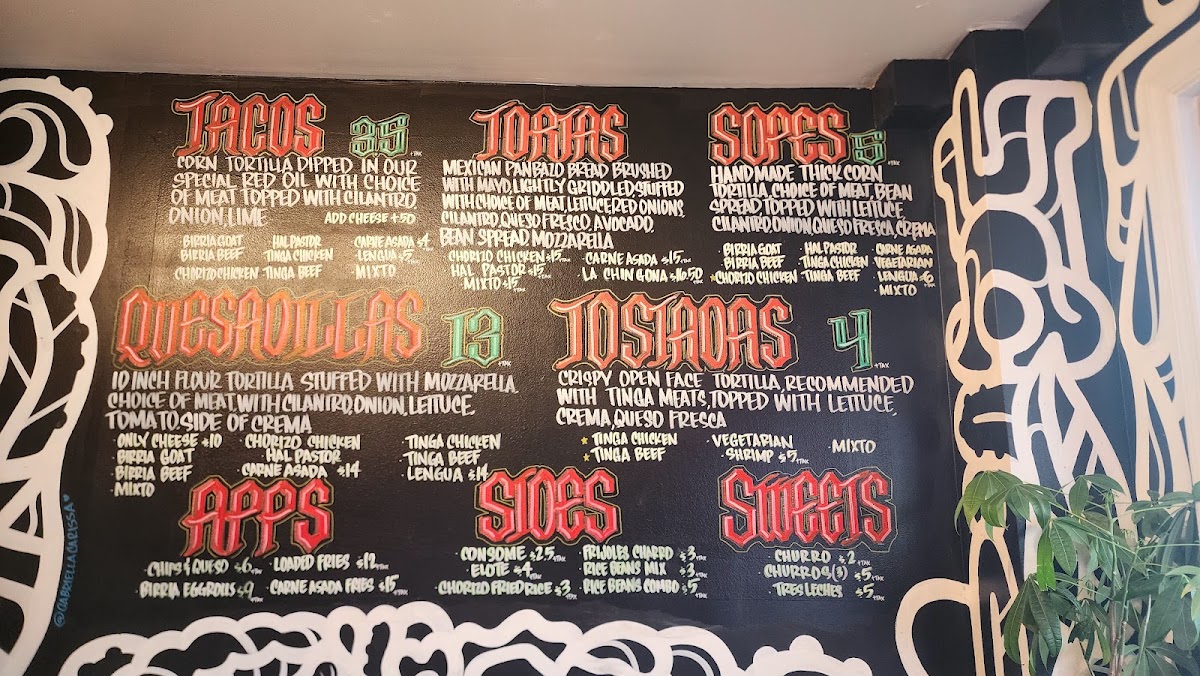 TACOS 35 +TAX
CORN TORTILLA DIPPED IN OUR
SPECIAL RED OIL WITH CHOICE
OF MEAT TOPPED WITH CILANTRO,
ONION, LIME
ADD CHEESE +50
BIRRIA GOAT HAL PASTOR CARNE ASADA $4
BIRRIA BEEF TINGA CHICKEN LENGUA $5
CHORIZO CHICKEN TINGA BEEF MIXTO
TORTAS
MEXICAN PANBAZO BREAD BRUSHED
WITH MAYO, LIGHTLY GRIDDLED, STUFFED
WITH CHOICE OF MEAT, LETTUCE, RED ONIONS,
CILANTRO, QUESO FRESCO, AVOCADO,
BEAN SPREAD, MOZZARELLA
CHORIZO CHICKEN $15 +TAX · CARNE ASADA $15 +TAX
HAL PASTOR $15 +TAX · LA CHINGONA $16.50 +TAX
MIXTO $15 +TAX
SOPES 5 +TAX
HANDMADE THICK CORN
TORTILLA, CHOICE OF MEAT, BEAN
SPREAD TOPPED WITH LETTUCE
CILANTRO, ONION, QUESO FRESCA, CREMA
· BIRRIA GOAT · HAL PASTOR · CARNE ASADA
· BIRRIA BEEF · TINGA CHICKEN · VEGETARIAN
★ CHORIZO CHICKEN · TINGA BEEF · LENGUA $6 +TAX
· MIXTO
QUESADILLAS 13 +TAX
10 INCH FLOUR TORTILLA STUFFED WITH MOZZARELLA,
CHOICE OF MEAT, WITH CILANTRO, ONION, LETTUCE,
TOMATO. SIDE OF CREMA
· ONLY CHEESE $10 · CHORIZO CHICKEN · TINGA CHICKEN
· BIRRIA GOAT · HAL PASTOR · TINGA BEEF
· BIRRIA BEEF · CARNE ASADA $14 · LENGUA $14 +TAX
· MIXTO
TOSTADAS 4 +TAX
CRISPY OPEN FACE TORTILLA, RECOMMENDED
WITH TINGA MEATS, TOPPED WITH LETTUCE,
CREMA, QUESO FRESCA
★ TINGA CHICKEN · VEGETARIAN · MIXTO
★ TINGA BEEF · SHRIMP $5 +TAX
APPS
· CHIPS & QUESO $6 +TAX · LOADED FRIES $12 +TAX
· BIRRIA EGGROLLS $9 +TAX · CARNE ASADA FRIES $15 +TAX
SIDES
· CONSOME $2.5 +TAX · FRIJOLES CHARRO $3 +TAX
· ELOTE $4 +TAX · RICE BEANS MIX $3 +TAX
· CHORIZO FRIED RICE $3 +TAX · RICE BEANS COMBO $5 +TAX
SWEETS
· CHURRO $2 +TAX
· CHURROS (3) $5 +TAX
· TRES LECHES $5 +TAX
@GABRIELLACARISSA